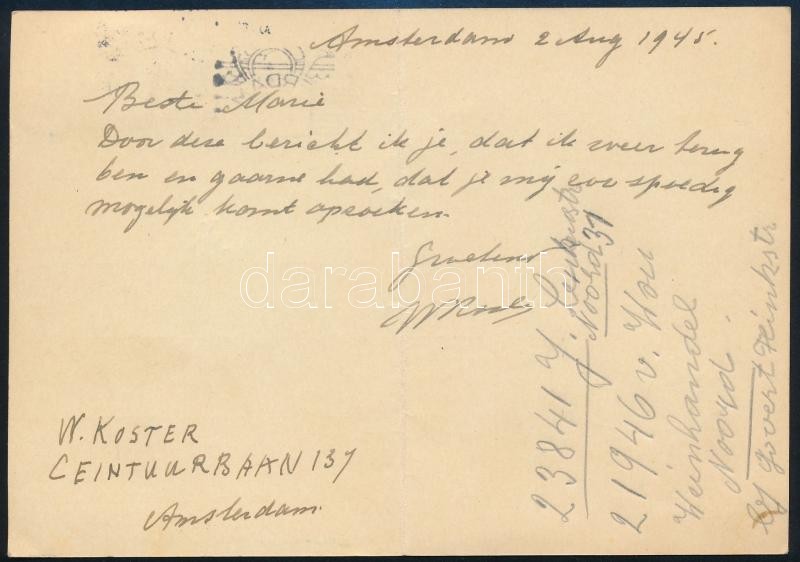 Amsterdam 2 Aug 1945.
Beste Marie
Door deze bericht ik je, dat ik weer terug
ben en gaarne had, dat je mij zoo spoedig
mogelijk komt opzoeken.
Groetend
W Koster
W. KOSTER
CEINTUURBAAN 137
Amsterdam.
darabanth
23841 J.
Noord 37
21946 v.
Weinhandel
Noord
b/ Govert Flinkstr